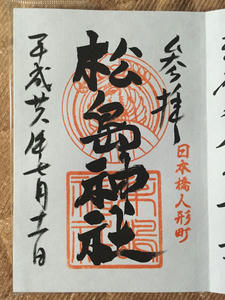 参拝
日本橋人形町
松島神社
平成廿八年七月十一日